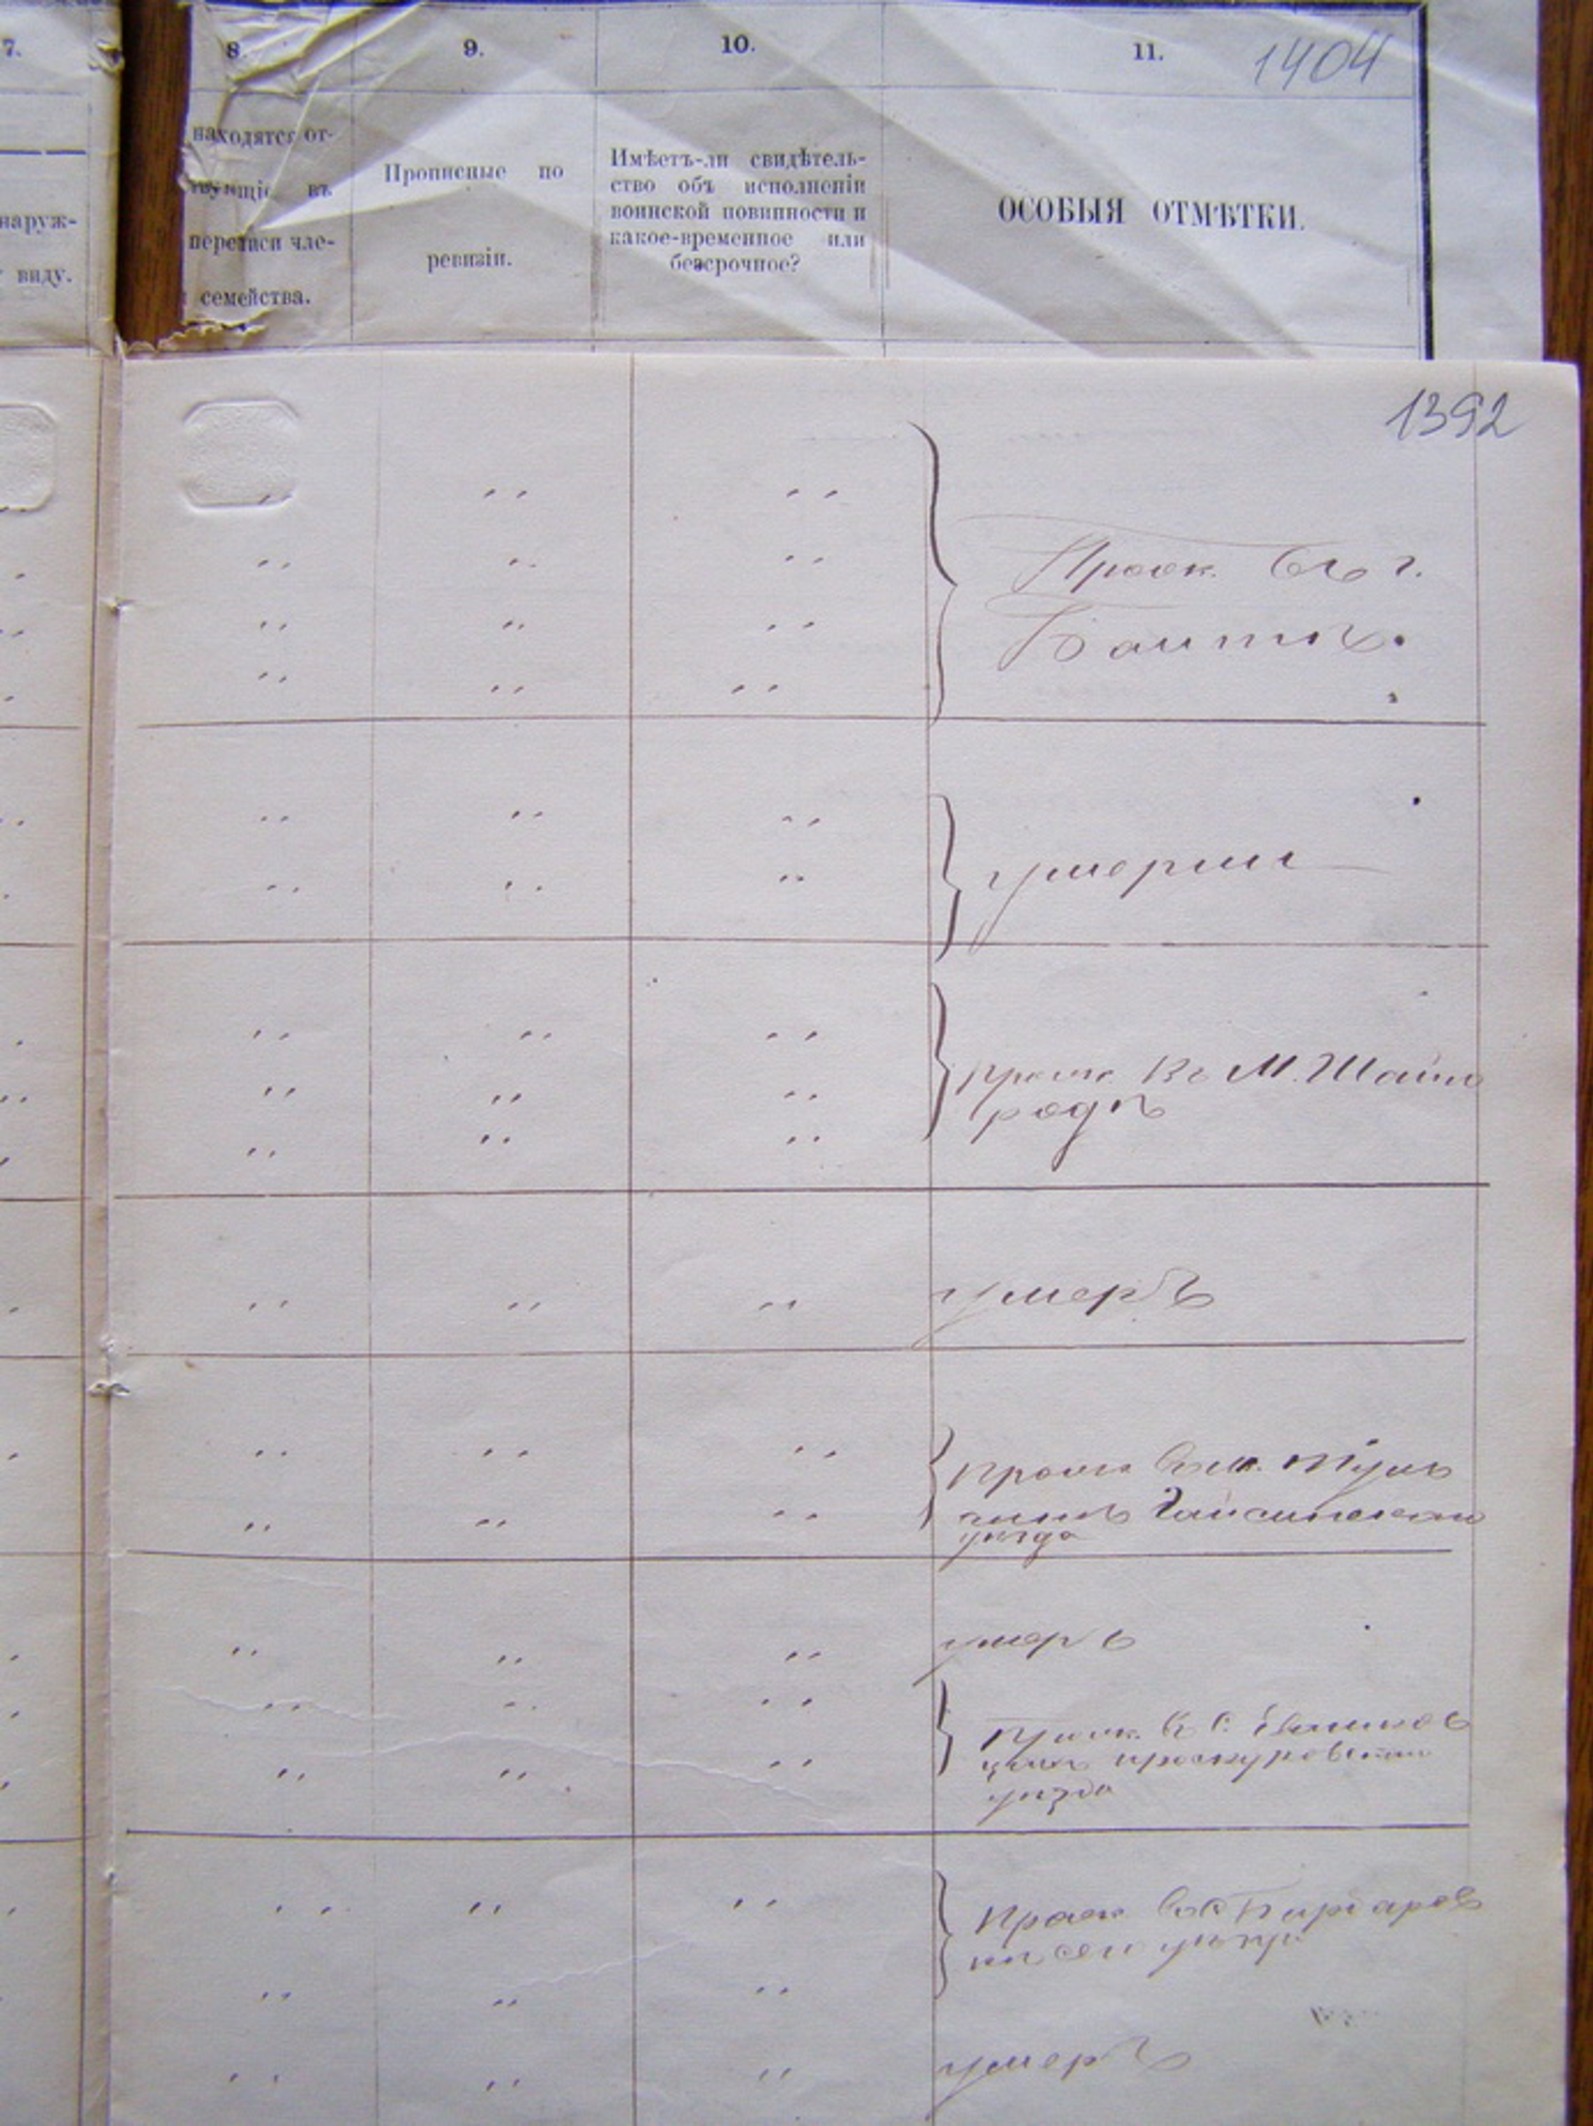 7. 8. 9. 10. 11. 1404
наруж-
виду.
находятся от-
въ
переписи чле-
семейства.
Прописные по
ревизіи.
Имѣетъ-ли свидѣтель-
ство объ исполненіи
воинской повинности и
какое-временное или
безсрочное?
ОСОБЫЯ ОТМѢТКИ.
1392
Прож. въ г.
Балтѣ.
умерли
прож. Въ М. Шаго
родѣ
умеръ
прож въ м. Туль
чинѣ Гайсинскаго
уѣзда
умеръ
Прож. въ с.
проскуровскаго
уѣзда
Прож въ с
умеръ